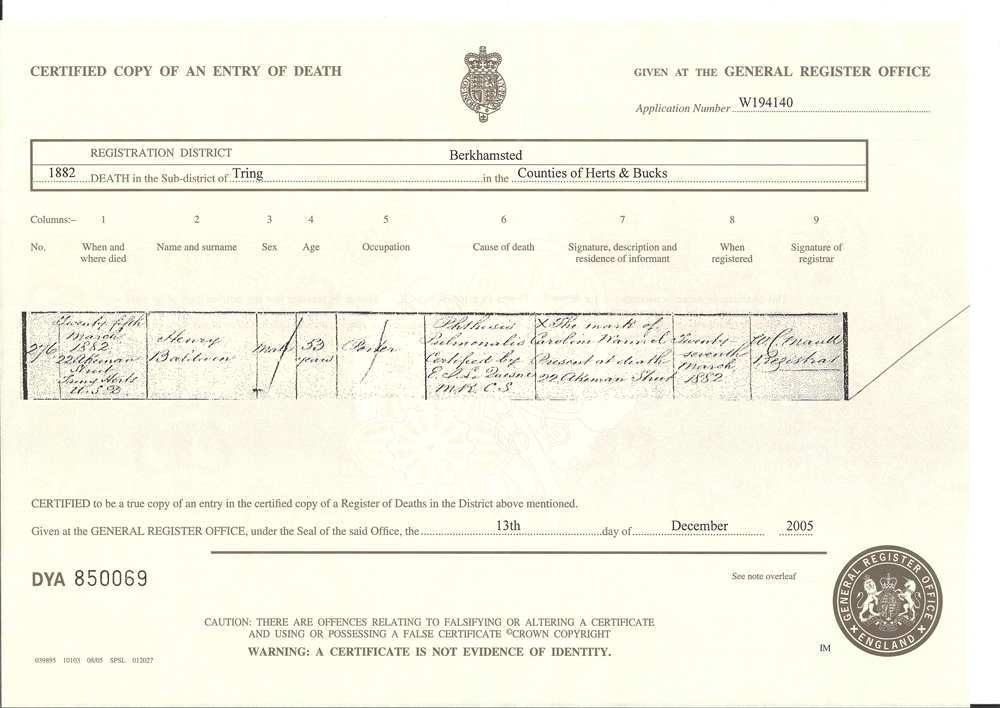 CERTIFIED COPY OF AN ENTRY OF DEATH
GIVEN AT THE GENERAL REGISTER OFFICE
Application Number W194140
REGISTRATION DISTRICT Berkhamsted
1882 DEATH in the Sub-district of Tring in the Counties of Herts & Bucks
Columns:– 1 2 3 4 5 6 7 8 9
No. When and where died Name and surname Sex Age Occupation Cause of death Signature, description and residence of informant When registered Signature of registrar
276
Twenty fifth
March
1882
22 Akeman
Street
Tring Herts
U.S.D.
Henry
Baldwin
Male
53
years
Porter
Phthisis
Pulmonalis
Certified by
E. A. Le Quesne
M.R.C.S.
X The mark of
Caroline
Present at death
22 Akeman Street
Twenty
seventh
March
1882
Registrar
CERTIFIED to be a true copy of an entry in the certified copy of a Register of Deaths in the District above mentioned.
Given at the GENERAL REGISTER OFFICE, under the Seal of the said Office, the 13th day of December 2005
DYA 850069
See note overleaf
CAUTION: THERE ARE OFFENCES RELATING TO FALSIFYING OR ALTERING A CERTIFICATE
AND USING OR POSSESSING A FALSE CERTIFICATE ©CROWN COPYRIGHT
WARNING: A CERTIFICATE IS NOT EVIDENCE OF IDENTITY.
039895 10103 08/05 SPSL 012027
IM
GENERAL REGISTER OFFICE
ENGLAND